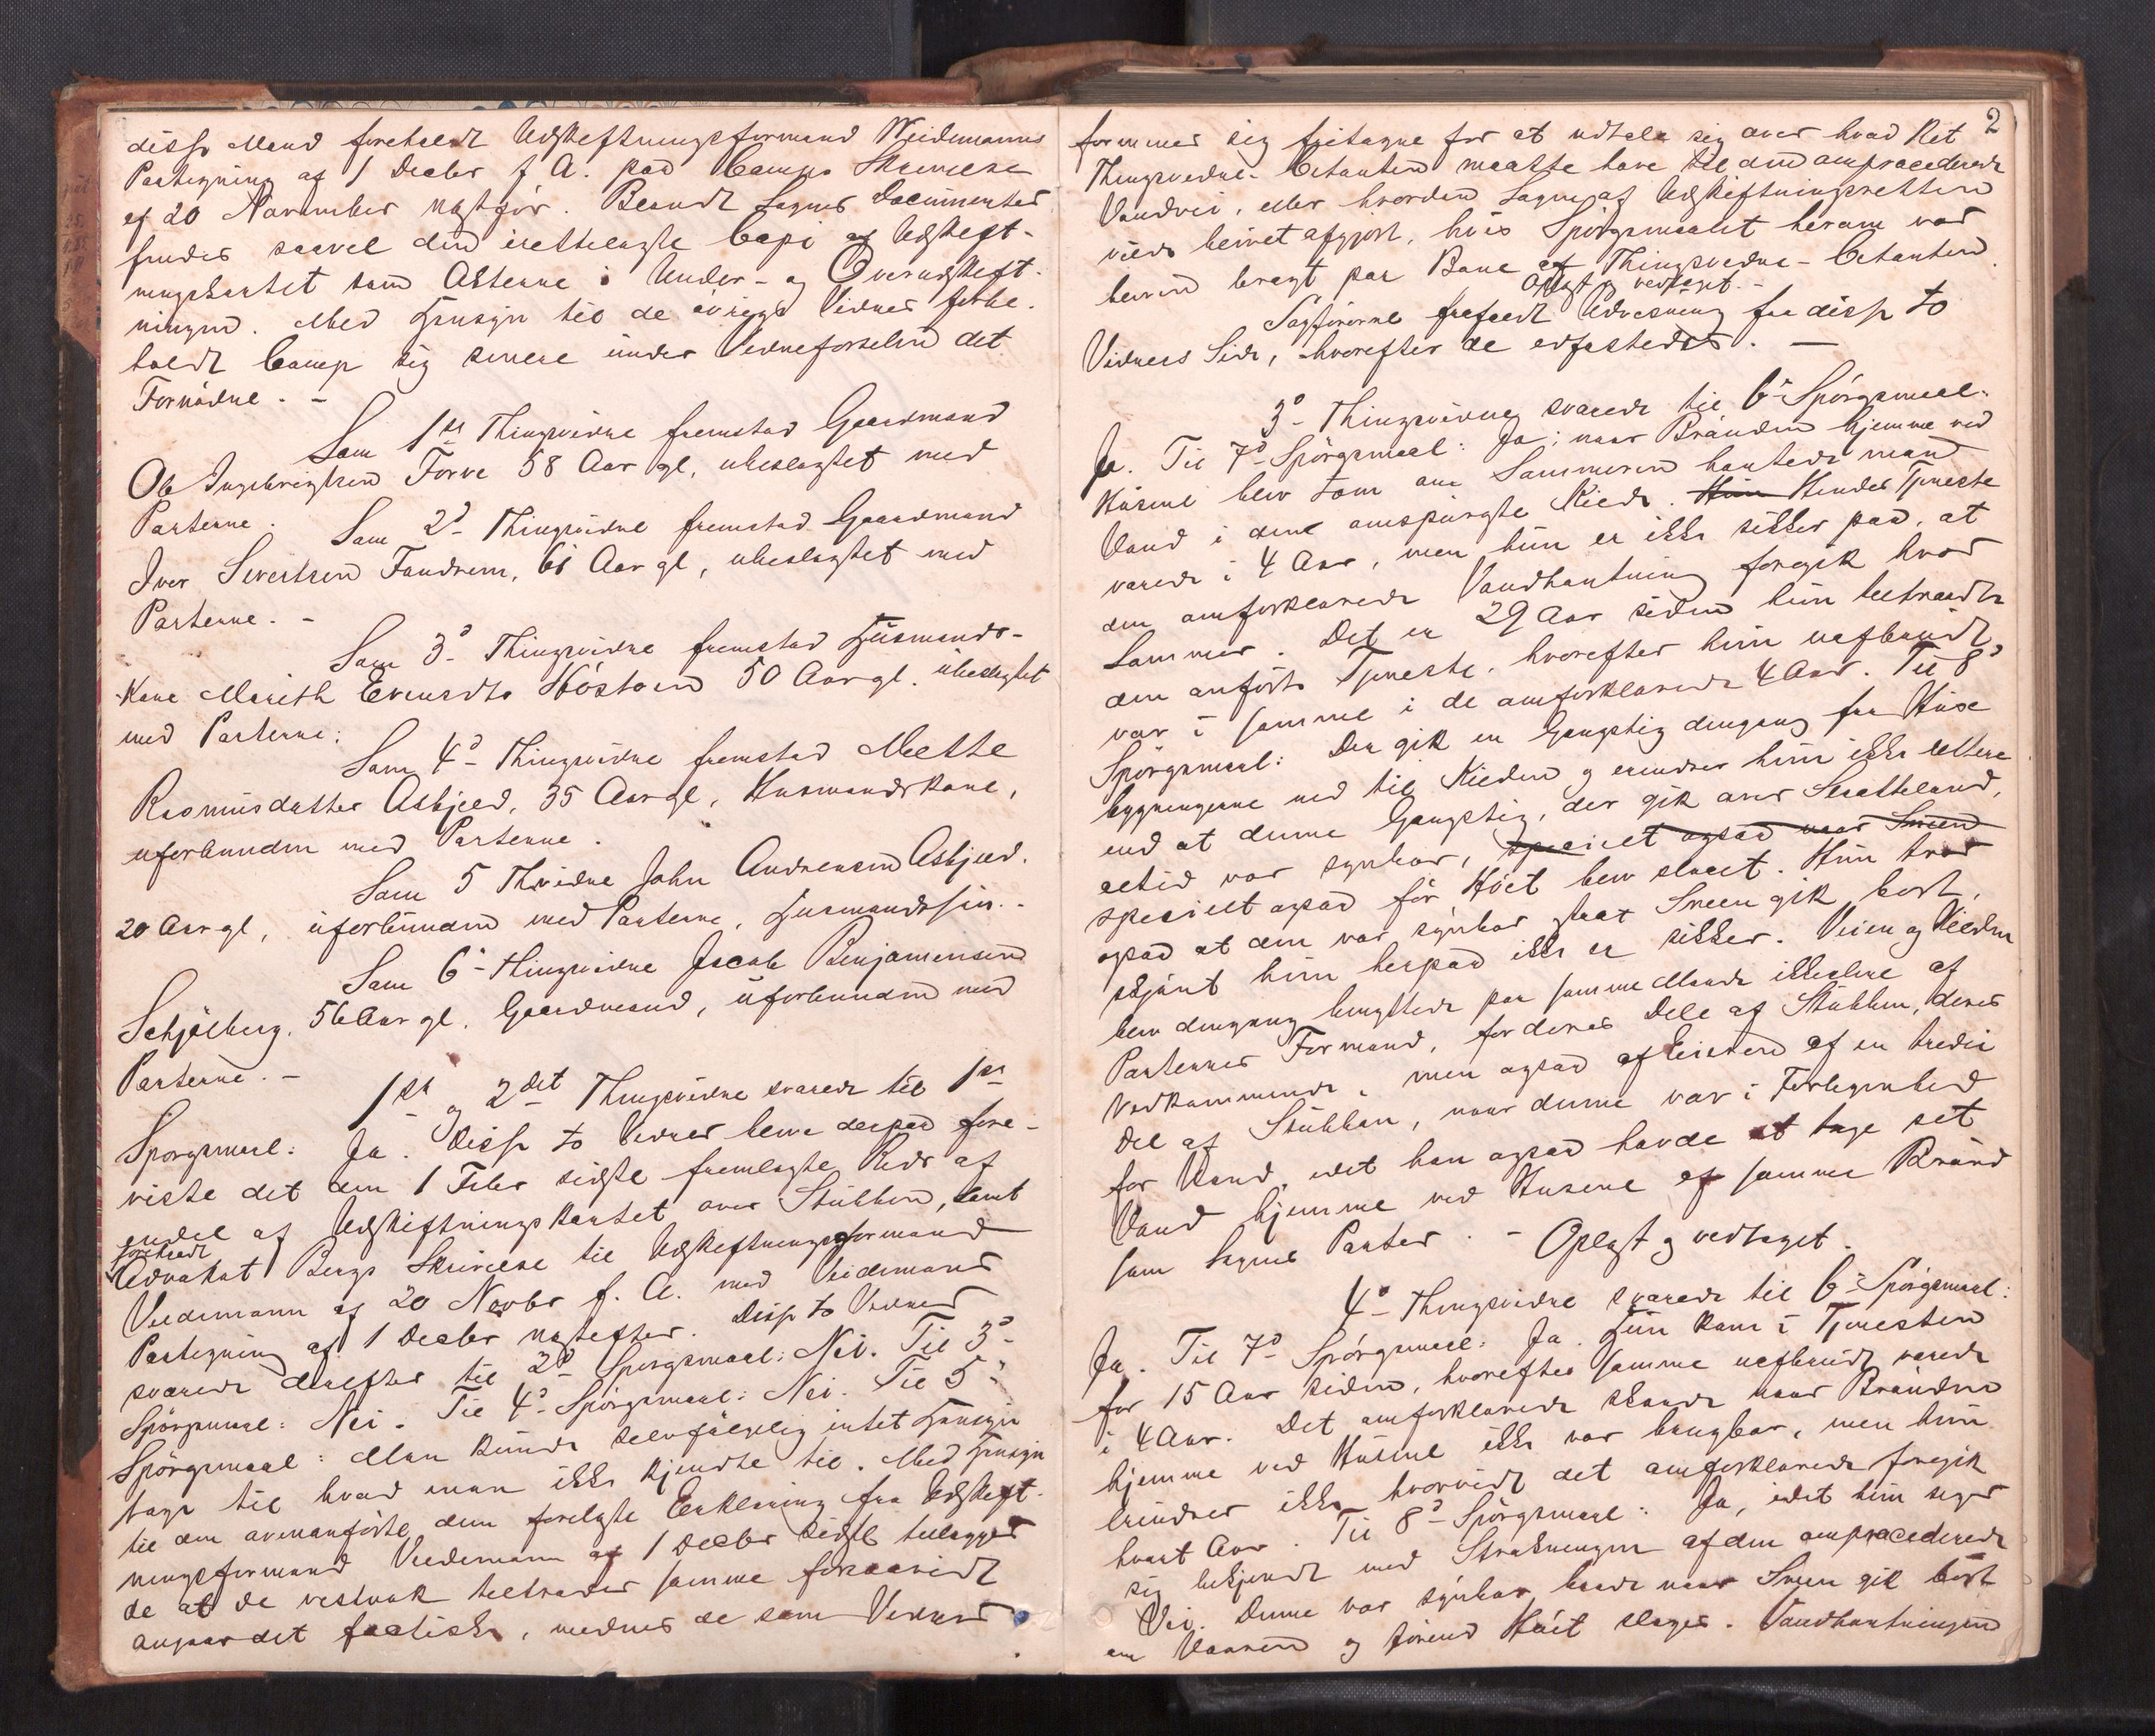 disse Mænd foreholdt Udskiftningsformand Weidemanns
Paategning af 1 Decbr f. A. paa Camps Skrivelse
af 20 November næstfør. Blandt Sagens Documenter
findes saavel den irettelagte Copi af Udskift-
ningskartet som Akterne i Under- og Overudskift-
ningen. Med Hensyn til de øvrige Vidner forbe-
holdt Camp sig senere under Vidneførselen det
Fornødne. -
Som 1ste Thingvidne fremstod Gaardmand
Ole Ingebrigtsen Forve 58 Aar gl, ubeslægtet med
Parterne.
Som 2d Thingvidne fremstod Gaardmand
Iver Sivertsen Fandrem, 61 Aar gl, ubeslægtet med
Parterne. -
Som 3d Thingvidne fremstod Huusmands-
Kone Marith Evensdtr Høstoen 50 Aar gl. ubeslægtet
med Parterne.
Som 4d Thingvidne fremstod Mette
Rasmusdatter Asbjeld, 35 Aar gl, Husmandskone,
uforbunden med Parterne.
Som 5 Thvidne John Andreasen Asbjeld.
20 Aar gl, uforbunden med Parterne, Husmandssøn.
Som 6d Thingvidne Jacob Benjaminsen
Schjølberg, 56 Aar gl. Gaardmand, uforbunden med
Parterne. -
1ste og 2det Thingsvidne svarede til 1ste
Spørgsmaal: Ja. Disse to Vidner bleve derpaa fore-
viste det den 1 Febr sidste fremlagte Rids af
endel af Udskiftningskartet over Stubben, samt
foreholdt
Advokat Bergs Skrivelse til Udskiftningsformand
Veidemann af 20 Novbr f. A. med Veidemanns
Paategning af 1 Decbr næstefter. Disse to Vidner
svarede derefter til 2d Spørgsmaal: Nei. Til 3d
Spørgsmaal: Nei. Til 4d Spørgsmaal: Nei. Til 5d
Spørgsmaal: Man kunde selvfølgelig intet Hensyn
tage til hvad man ikke kjendte til. Med Hensyn
til den ovenanførte dem forelagte Erklæring fra Udskift-
ningsformand Veidemann af 1 Decbr sidstl tillægger
de at de vistnok tiltræder samme forsaavidt
angaar det factiske, medens de som Vidner
2
formener sig fritagne for at udtale sig over hvad Ret
Thingsvidne-Citanten maatte have til den omprocederede
Vandvei, eller hvordan Sagen af Udskiftningsretten
vilde blevet afgjort, hvis Spørgsmaalet herom var
bleven bragt paa Bane af Thingsvidne-Citanten.
Oplæst og vedtaget. -
Sagførerne frafaldt Udvisning fra disse to
Vidners Side, hvorefter de erfastedes. -
3d Thingsvidne svarede til 6d Spørgsmaal:
Ja. Til 7d Spørgsmaal: Ja; naar Brønden hjemme ved
Husene blev tom om Sommeren hentede man
Vand i den omspurgte Kilde. Hun Hendes Tjeneste
varede i 4 Aar, men hun er ikke sikker paa, at
den omforklarede Vandhentning foregik hver
Sommer. Det er 29 Aar siden hun tiltraadte
den anførte Tjeneste, hvorefter hun uafbrudt
var i samme i de omforklarede 4 Aar. Til 8d
Spørgsmaal: Der gik en Gangstig dengang fra Huse
bygningerne ned til Kilden og erindrer hun ikke rettere
end at denne Gangstig, der gik over Slaatteland,
altid var synbar, specielt ogsaa naar Sneen
specielt ogsaa før Høet blev slaaet. Hun tror
ogsaa at den var synbar strax Sneen gik bort,
skjønt hun herpaa ikke er sikker. Veien og Kilden
blev dengang benyttede paa samme Maade ikke alene af
Parternes Formænd, for deres Dele af Stubben, deres
Vedkommende, men ogsaa af Eieren af en tredie
Del af Stubben, naar denne var i Forlegenhed
for Vand, idet han ogsaa havde at tage sit
Vand hjemme ved Husene af samme Brønd
som Sagens Parter. - Oplæst og vedtaget.
4d Thingsvidne svarede til 6d Spørgsmaal:
Ja. Til 7d Spørgsmaal: Ja. Hun kom i Tjenesten
for 15 Aar siden, hvorefter samme uafbrudt varede
i 4 Aar. Det omforklarede skede naar Brønden
hjemme ved Husene ikke var brugbar, men hun
erindrer ikke hvorvidt det omforklarede foregik
hvert Aar. Til 8d Spørgsmaal: Ja, idet hun siger
sig bekjendt med Strækningen af den omprocederede
Vei. Denne var synbar baade naar Sneen gik bort
om Vaaren og førend Høet sloges. Vandhentningen